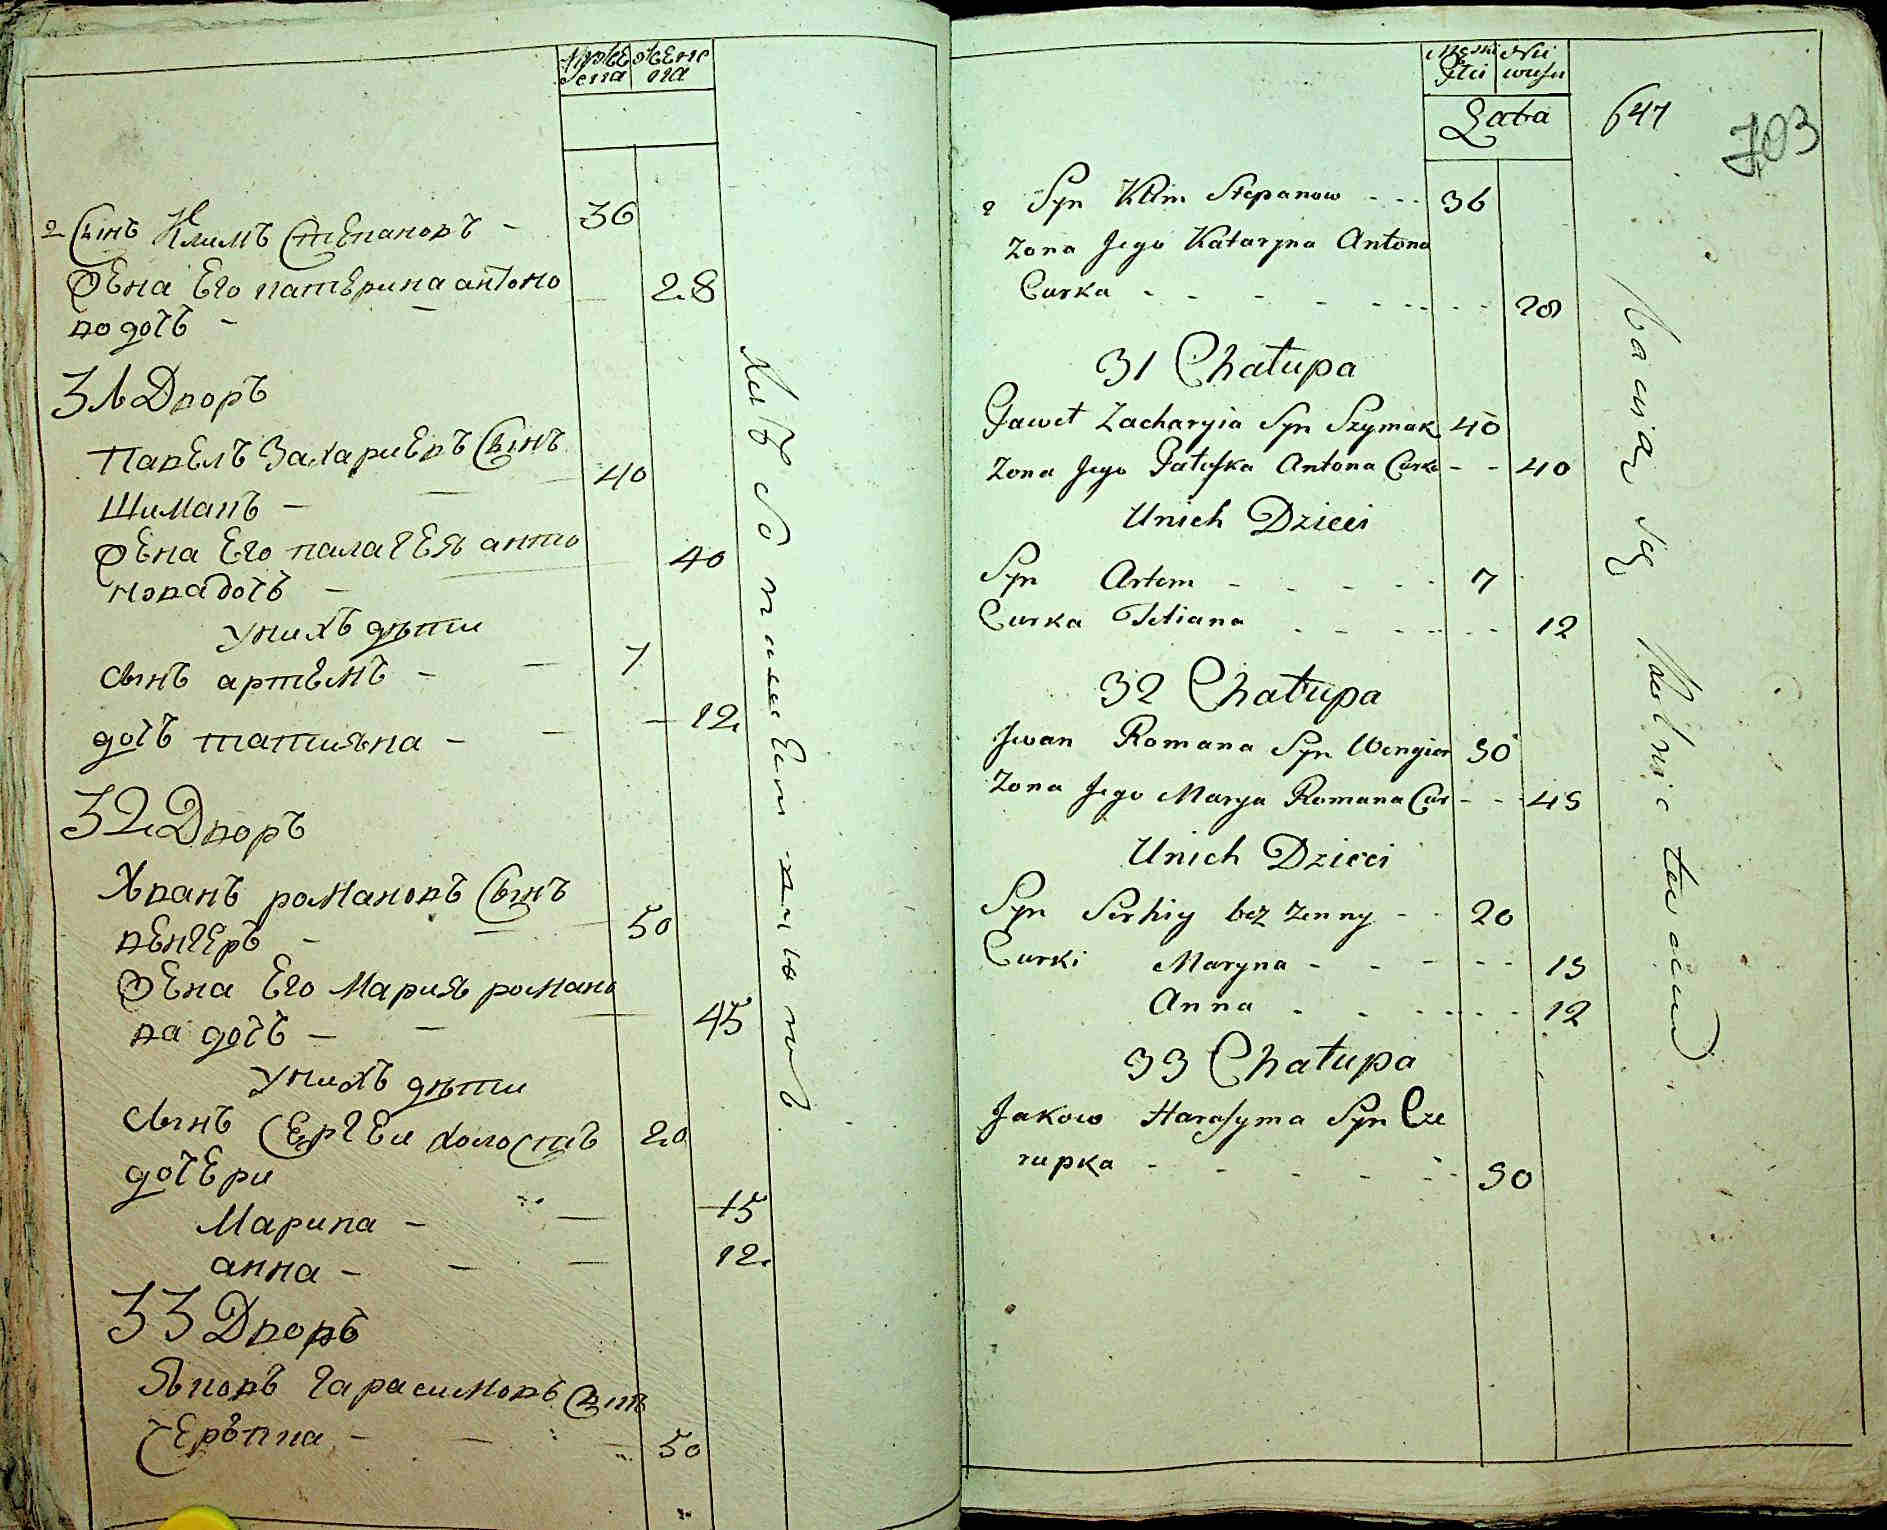 мужеска женска
36
2 Сынъ Климъ Степановъ -
Жена Его катерина антоно
ва дочь - - 28
31 Дворъ
Павелъ Захариевъ Сынъ
Шимакъ - - 40
Жена Его палагея анто
нова дочь - 40
У нихъ дѣти
Сынъ артемъ - - 7
дочь татияна - - 12
32 Дворъ
Иванъ романовъ Сынъ
венгеръ - - 50
Жена Его Мария романо
ва дочь - - 45
У нихъ дѣти
Сынъ Сергеи холостъ 20
дочери
Марина - - 15
анна - - - 12
33 Дворъ
Яковъ гарасимовъ Сынъ
Черѣпка - - - 50
Męzki Płci Niewiast
Lata
647
703
2 Syn Klim Stepanow - - - 36
Zona Jego Kataryna Antona
Curka - - - - - - 28
31 Chałupa
Paweł Zacharyia Syn Szymak 40
Zona Jego Palaszka Antona Curka - - 40
Unich Dzieci
Syn Artem - - - - - 7
Curka Tetiana - - - - - 12
32 Chałupa
Jwan Romana Syn Wengier 50
Zona Jego Marya Romana Cur - - 45
Unich Dzieci
Syn Serhiy bez zenny - - 20
Curki Maryna - - - - - 15
Anna - - - - - 12
33 Chałupa
Jakow Harasyma Syn Cze
rupka - - - - - - 50